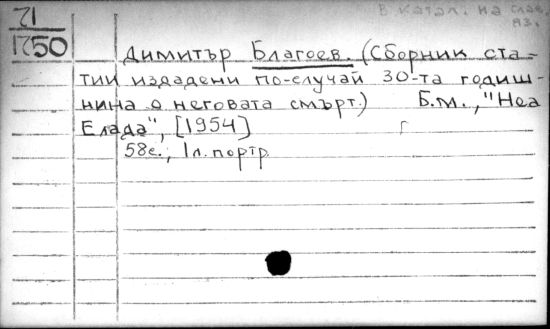 21
1750
В катал. на слав.
яз.
Димитър Благоев. (Сборник ста-
тии издадени по-случай 30-та годиш-
нина о неговата смърт.) Б.м., "Неа
Елада", [1954]
58с., 1л. портр.